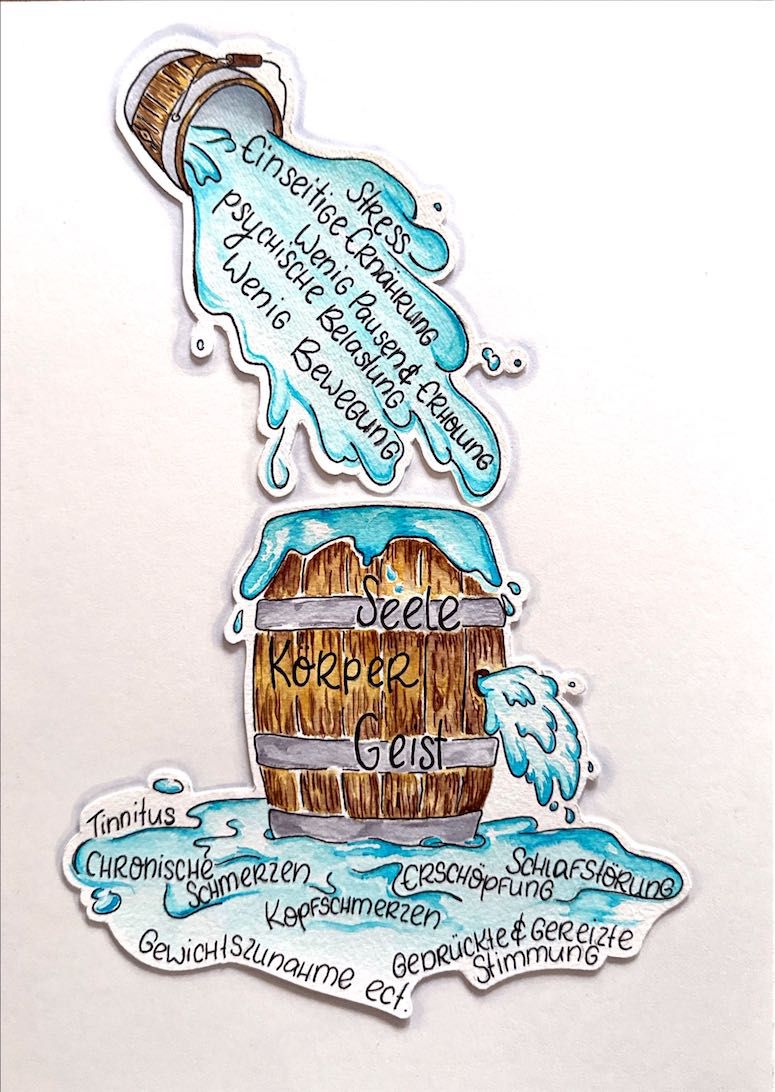 Stress
Einseitige Ernährung
Wenig Pausen & Erholung
psychische Belastung
Wenig Bewegung
Seele
Körper
Geist
Tinnitus
Chronische
Schmerzen
Erschöpfung
Schlafstörung
Kopfschmerzen
Gewichtszunahme ect.
Gedrückte & Gereizte
Stimmung